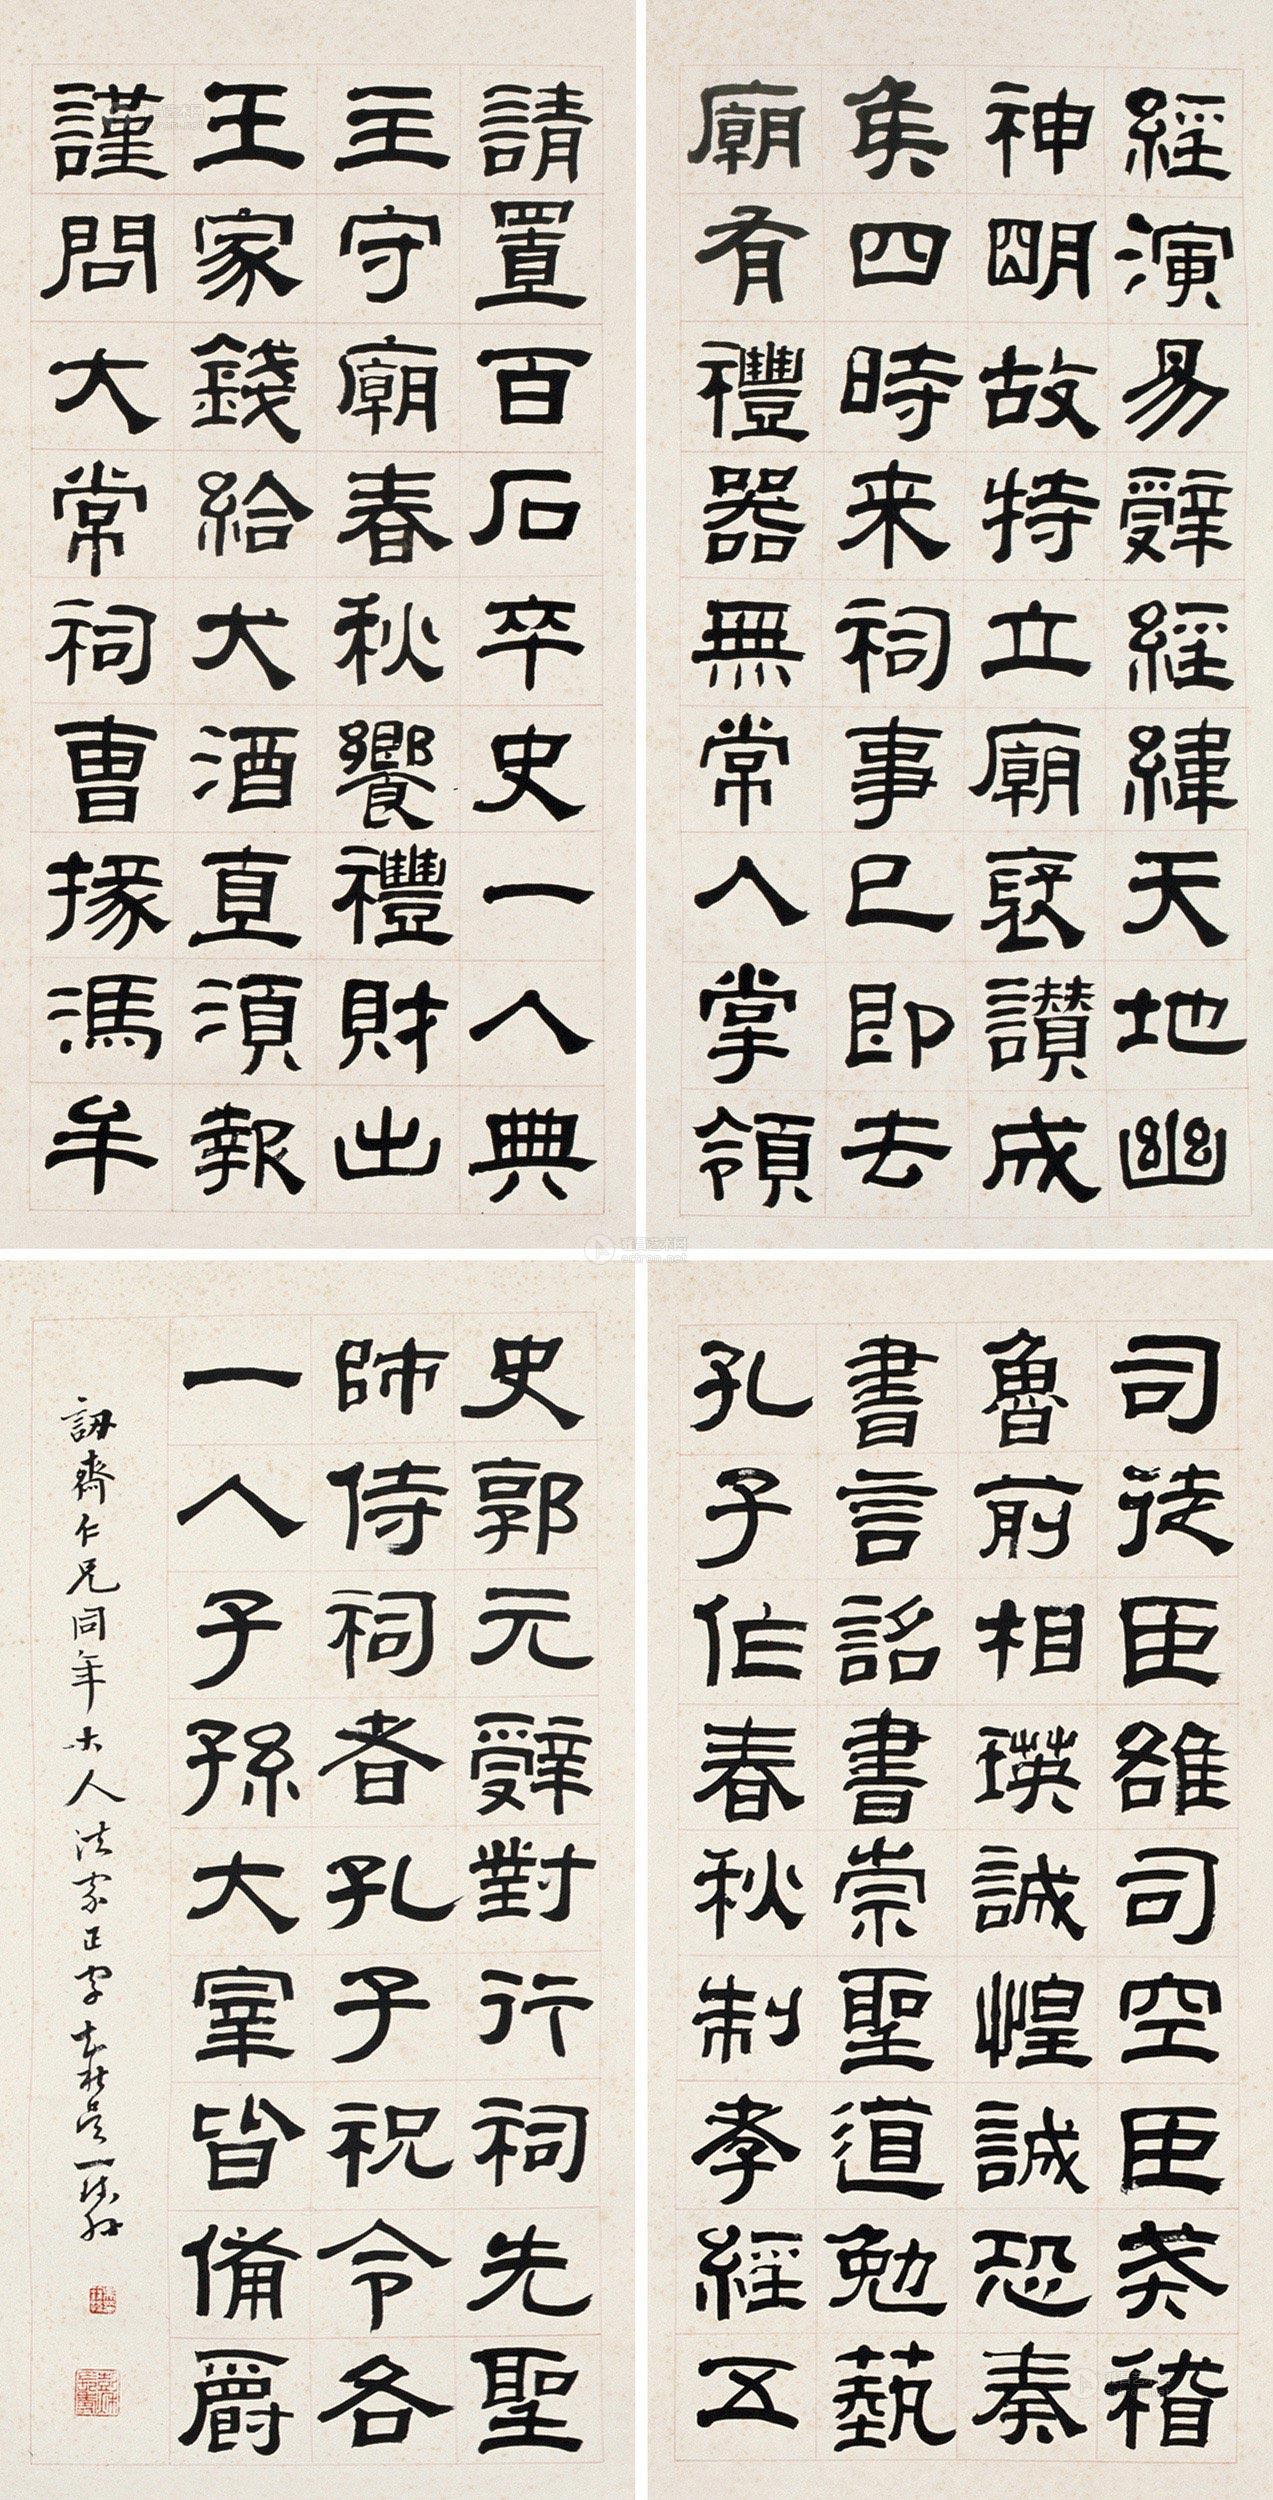 司徒臣雄司空臣戒稽
魯前相瑛誠惶誠恐奏
書言詔書崇聖道勉藝
孔子作春秋制孝經五
經演易辭經緯天地幽
神明故特立廟褒讚成
侯四時来祠事已即去
廟有禮器無常人掌領
請置百石卒史一人典
主守廟春秋饗禮財出
王家錢給犬酒直須報
謹問大常祠曹掾馮牟
史郭元辭對行祠先聖
師侍祠者孔子祝令各
一人子孫大宰皆備爵
訒齋仁兄同年大人法家正字
雅昌艺术网
artron.net